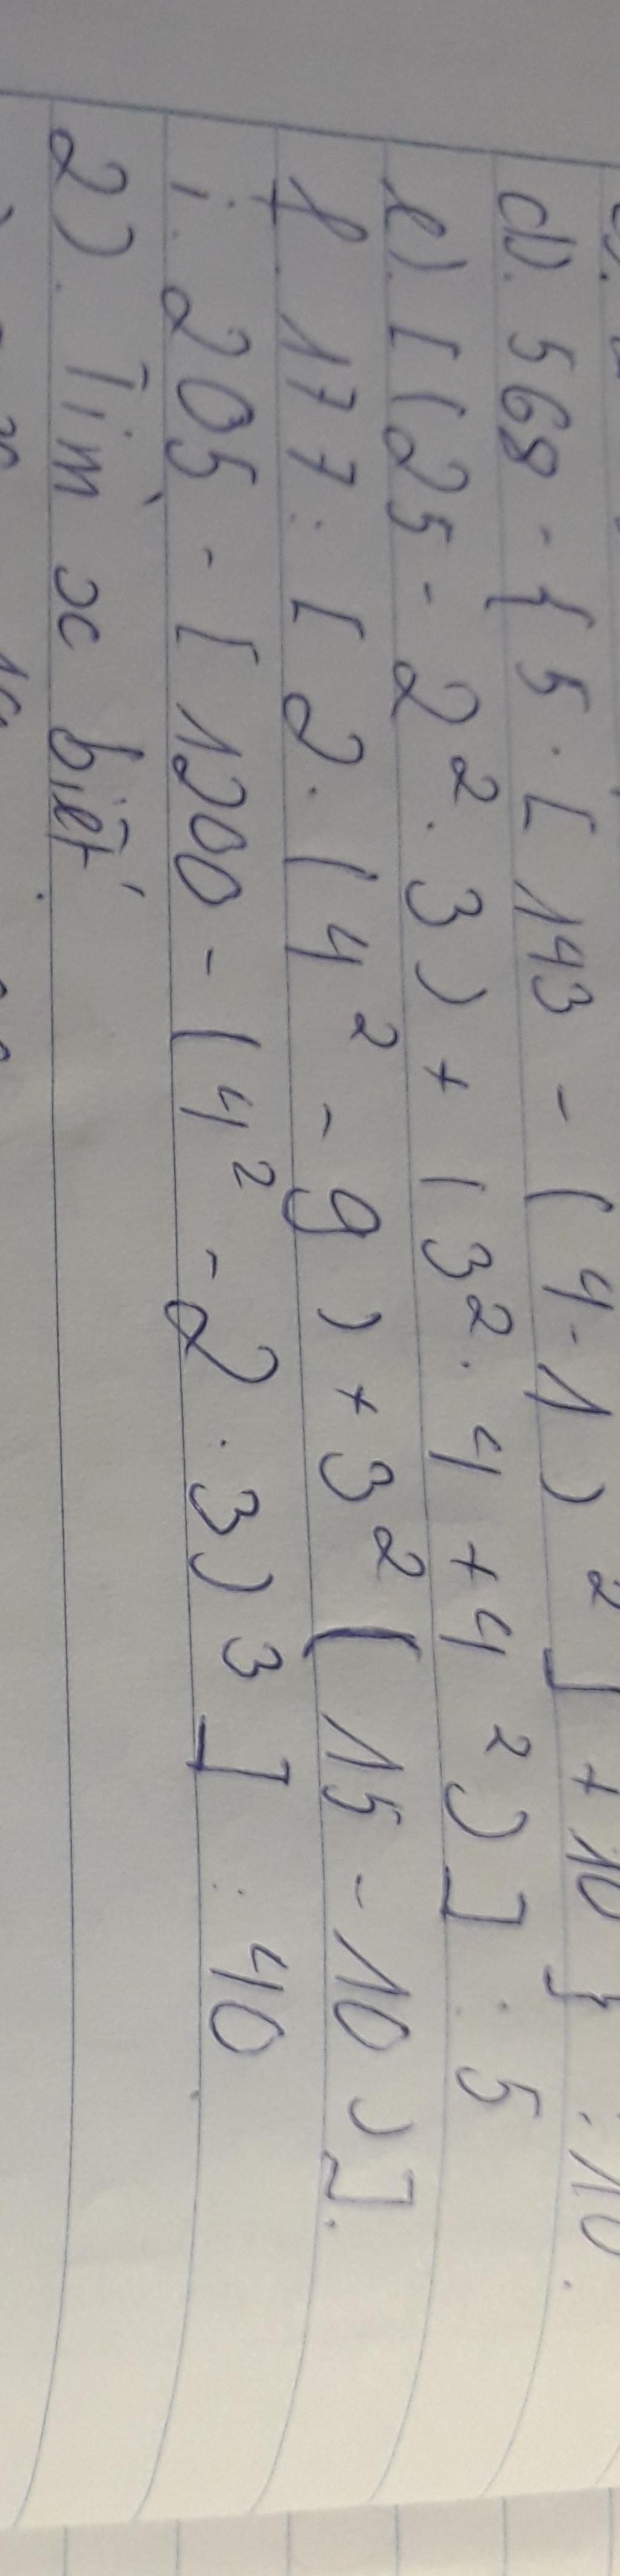 d). 568 - { 5 . [ 143 - ( 4 - 1 )² ] + 10 } : 10.
e). [ ( 25 - 2² . 3 ) + ( 3² . 4 + 4² ) ] : 5
f. 177 : [ 2 . ( 4² - 9 ) + 3² ( 15 - 10 ) ].
i. 205 - [ 1200 - ( 4² - 2 . 3 )³ ] : 40
2). Tìm x biết